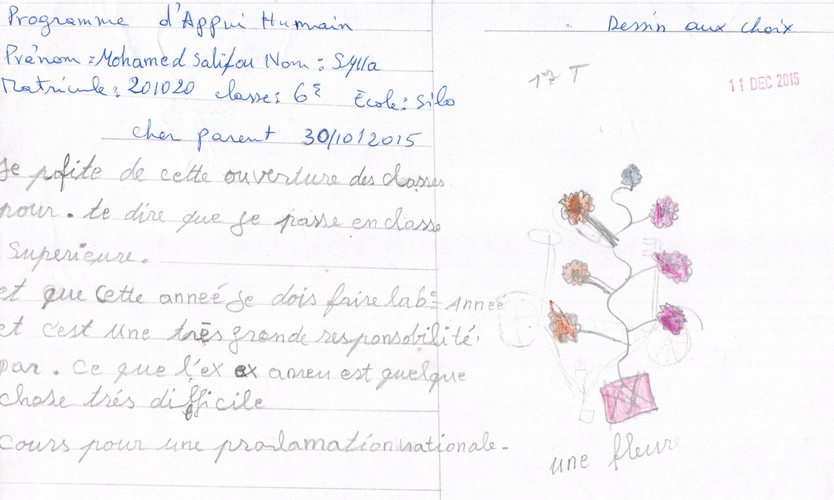 Programme d'Appui Humain
Prénom : Mohamed Salifou Nom : Sylla
Matricule : 201020 classe : 6e Ecole : Silo
cher parent 30/10/2015
Je pofite de cette ouverture des classes
pour . te dire que je passe en classe
Superieure .
et que cette anneé je dois faire la 6e Année
et c'est une très grande responsobilité .
par . ce que l'ex ex ameu est quelque
chose trés difficile
cours pour une proclamation nationale .
Dessin aux choix
1er T
11 DEC 2015
une fleure